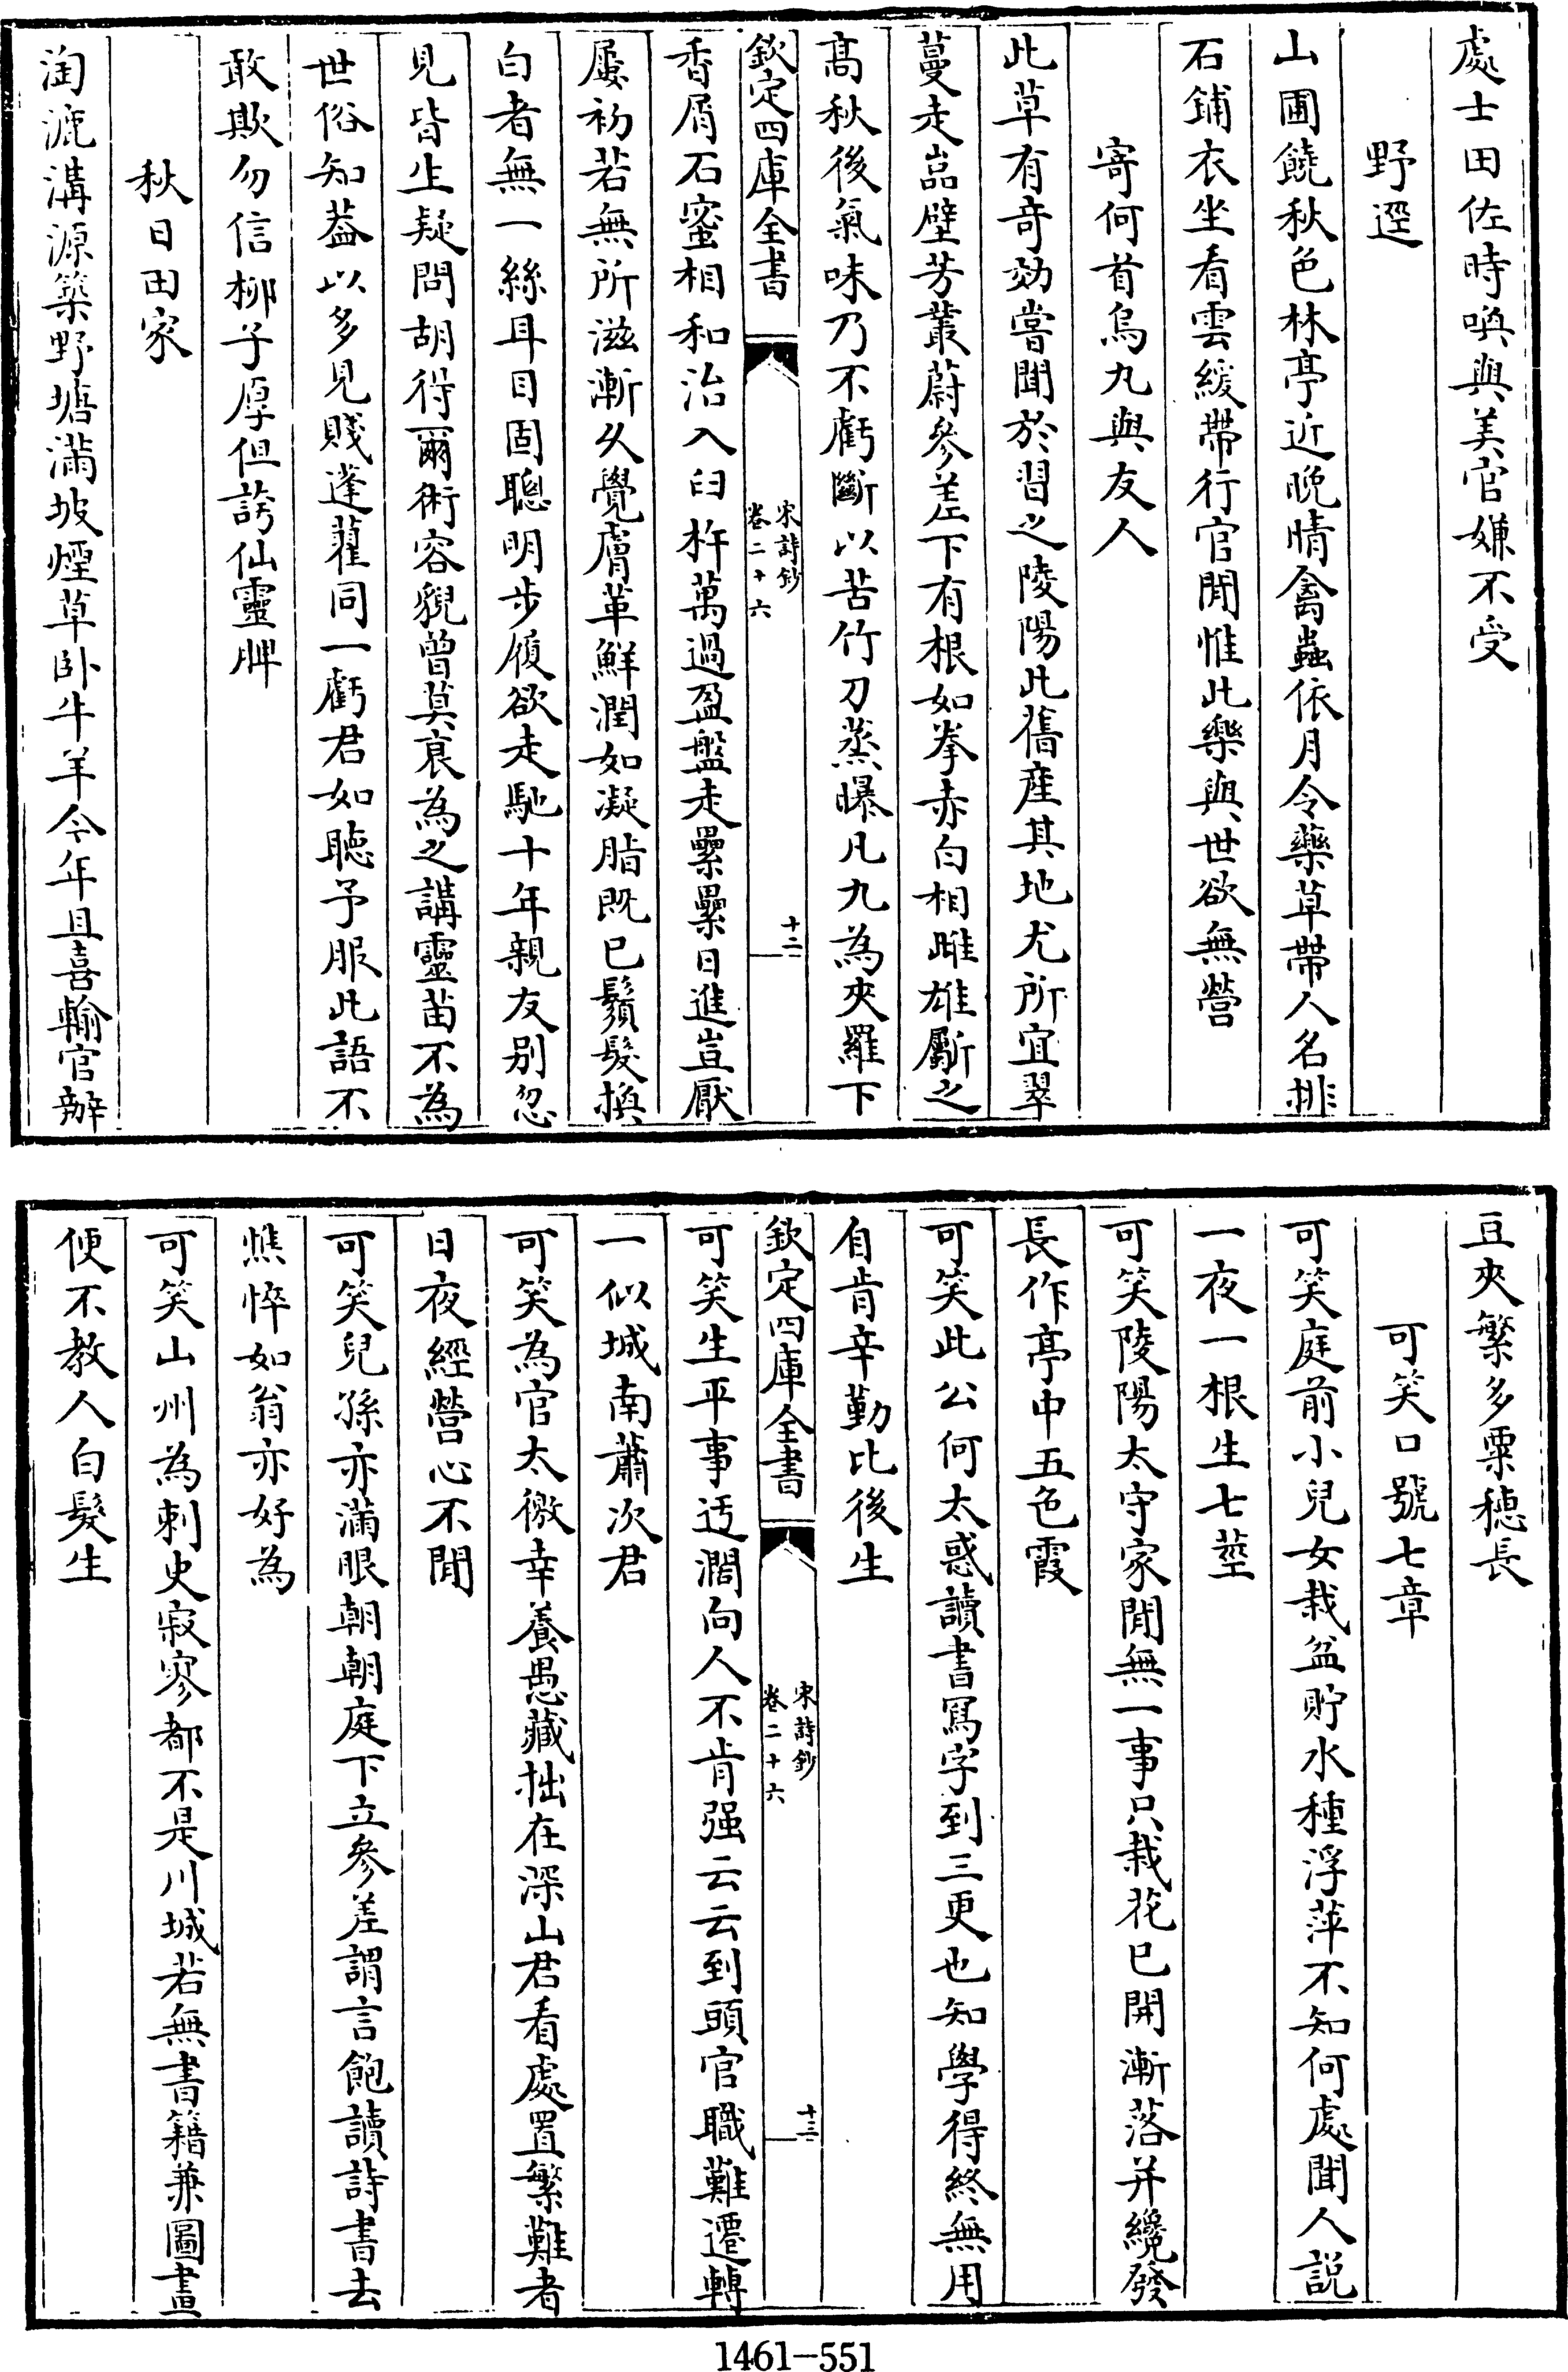 處士田佐時喚與美官嫌不受
野逕
山圃饒秋色林亭近晚晴禽蟲依月令藥草帶人名排
石鋪衣坐看雲緩帶行官閒惟此樂與世欲無營
寄何首烏丸與友人
此草有竒効嘗聞於習之陵陽此舊產其地尤所宜翠
蔓走巖壁芳叢蔚參差下有根如拳赤白相雌雄斸之
髙秋後氣味乃不虧斷以苦竹刀蒸曝凡九為夾羅下
欽定四庫全書
宋詩鈔
卷二十六
十二
香屑石蜜相和治入臼杵萬過盈盤走纍纍日進豈厭
屢初若無所滋漸久覺膚革鮮潤如凝脂既已鬚髮換
白者無一絲耳目固聰明步履欲走馳十年親友别忽
見皆生疑問胡得爾術容貎曾莫衰為之講靈苗不為
世俗知葢以多見賤蓬藋同一虧君如聽予服此語不
敢欺勿信栁子厚但誇仙靈脾
秋日田家
淘漉溝源築野塘滿坡煙草卧牛羊今年且喜輸官辦
豆夾繁多粟穂長
可笑口號七章
可笑庭前小兒女栽盆貯水種浮萍不知何處聞人説
一夜一根生七莖
可笑陵陽太守家閒無一事只栽花已開漸落并纔發
長作亭中五色霞
可笑此公何太惑讀書寫字到三更也知學得終無用
自肯辛勤比後生
欽定四庫全書
宋詩鈔
卷二十六
十三
可笑生平事迃濶向人不肯强云云到頭官職難遷轉
一似城南蕭次君
可笑為官太徼幸養愚藏拙在深山君看處置繁難者
日夜經營心不閒
可笑兒孫亦滿眼朝朝庭下立參差謂言飽讀詩書去
憔悴如翁亦好為
可笑山州為刺史寂寥都不是川城若無書籍兼圖畫
便不教人白髮生
1461-551